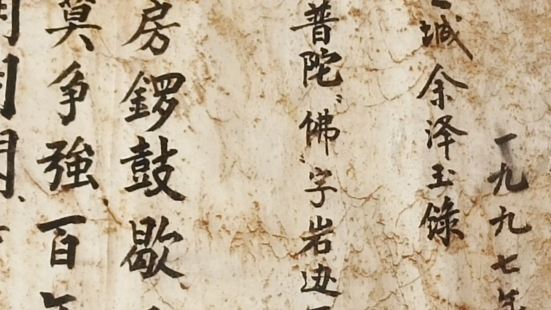 莫争強百年
房锣鼓歇
普陀“佛”字岩迹
城余泽玉錄
一九九七年